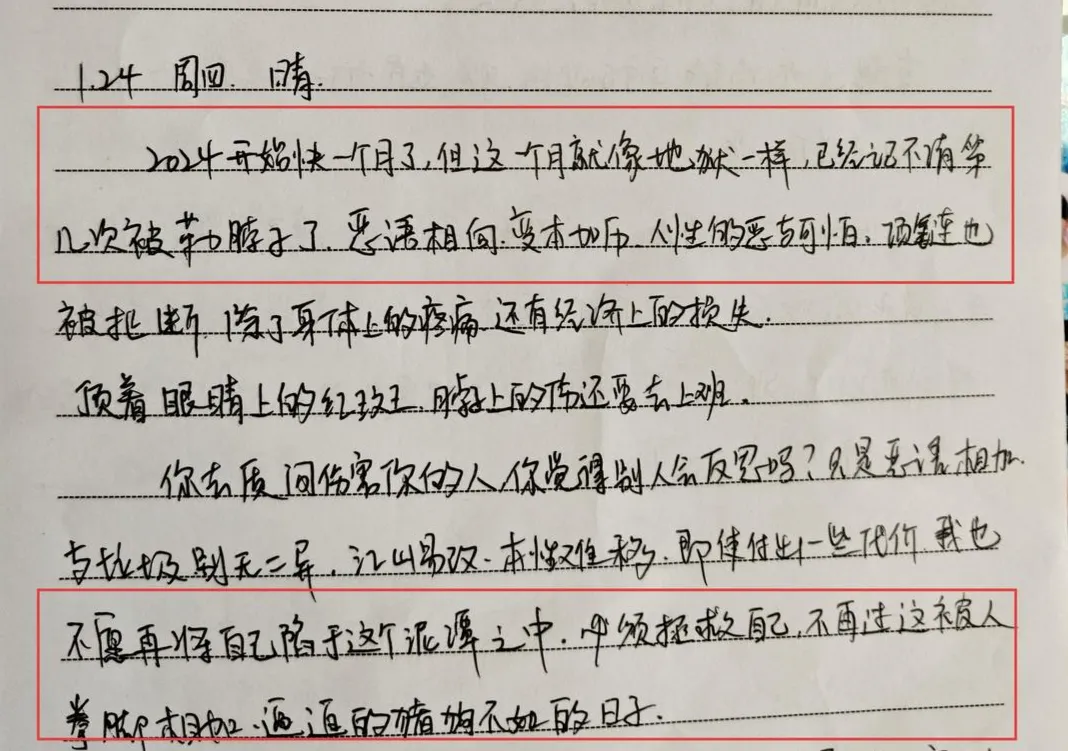 1.24 周四. 晴.
2024开始快一个月了,但这一个月就像地狱一样,已经记不清第
几次被勒脖子了.恶语相向.变本加厉.人性的恶与可怕.项链也
被扯断.除了身体上的疼痛还有经济上的损失.
顶着眼睛上的红斑 脖子上的伤还要去上班.
你去质问伤害你的人,你觉得别人会反思吗?只是恶语相加.
与垃圾别无二异.江山易改.本性难移.即使付出一些代价 我也
不愿再将自己陷于这个泥潭之中.必须拯救自己,不再过这被人
拳脚相加.逼迫的猪狗不如的日子.